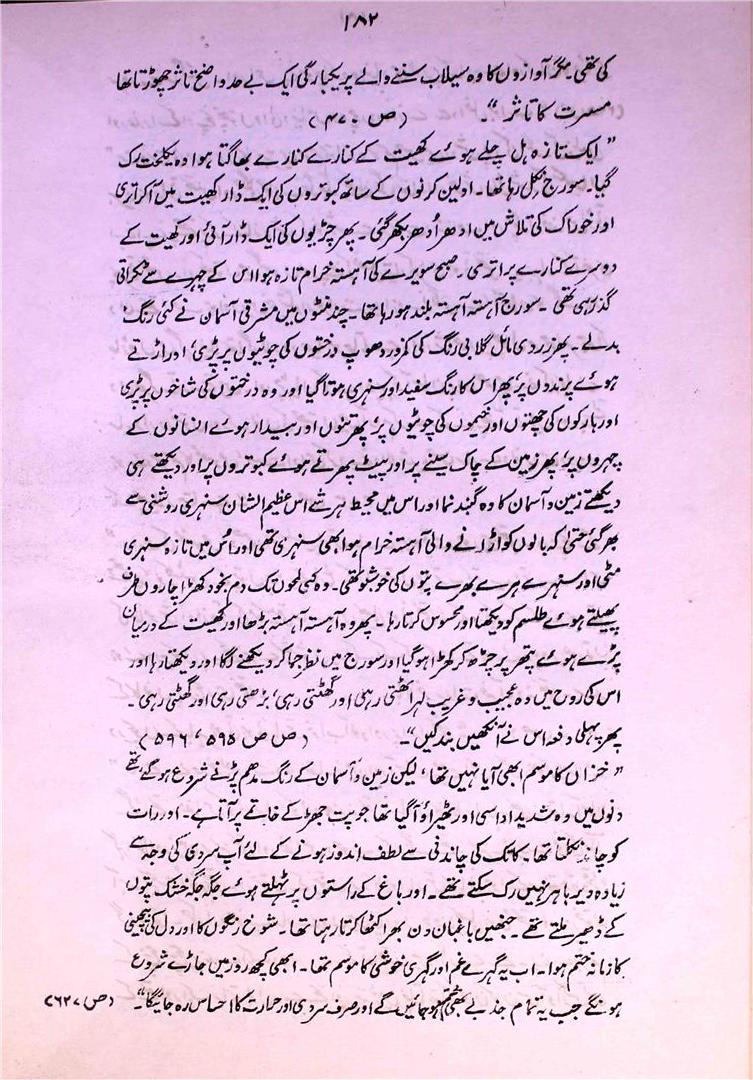 ۱۸۲
کی تھی مگر آوازوں کا وہ سیلاب سننے والے پر یکبارگی ایک بے حد واضح تاثر چھوڑتا تھا
مسرت کا تاثر"۔ (ص ۴۷۰)
" ایک تازہ ہل چلے ہوئے کھیت کے کنارے کنارے بھاگتا ہوا وہ یکلخت رک
گیا۔ سورج نکل رہا تھا۔ اولین کرنوں کے ساتھ کبوتروں کی ایک ڈار کھیت میں آکر اتری
اور خوراک کی تلاش میں ادھر اُدھر بکھر گئی۔ پھر چڑیوں کی ایک ڈار آئی اور کھیت کے
دوسرے کنارے پر اتری۔ صبح سویرے کی آہستہ خرام تازہ ہوا اس کے چہرے سے ٹکراتی
گذر رہی تھی۔ سورج آہستہ آہستہ بلند ہو رہا تھا۔ چند منٹوں میں مشرقی آسمان نے کئی رنگ
بدلے۔ پھر زردی مائل گلابی رنگ کی کمزور دھوپ درختوں کی چوٹیوں پر پڑی، اور اڑتے
ہوئے پرندوں پر، پھر اس کا رنگ سفید اور سنہری ہوتا گیا اور وہ درختوں کی شاخوں پر پڑی
اور بارکوں کی چھتوں اور خیموں کی چوٹیوں پر، پھر تنوں اور بیدار ہوئے انسانوں کے
چہروں پر، پھر زمین کے چاک سینے پر اور پیٹ پھرتے ہوئے کبوتروں پر اور دیکھتے ہی
دیکھتے زمین و آسمان کا وہ گنبد نما اور اس میں محیط ہر شے اس عظیم الشان سنہری روشنی سے
بھر گئی حتیٰ کہ بالوں کو اڑانے والی آہستہ خرام ہوا بھی سنہری تھی اور اُس میں تازہ سنہری
مٹی اور سنہرے ہرے بھرے پتوں کی خوشبو تھی۔ وہ کئی لمحوں تک دم بخود کھڑا چاروں طرف
پھیلتے ہوئے طلسم کو دیکھتا اور محسوس کرتا رہا۔ پھر وہ آہستہ آہستہ بڑھا اور کھیت کے درمیان
پڑے ہوئے پتھر پر چڑھ کر کھڑا ہو گیا اور سورج میں نظر جما کر دیکھنے لگا اور دیکھتا رہا اور
اس کی روح میں وہ عجیب و غریب لہر اٹھتی رہی اور گھٹتی رہی، بڑھتی رہی اور گھٹتی رہی۔
پھر پہلی دفعہ اس نے آنکھیں بند کیں"۔ (ص ص ۵۹۵، ۵۹۶)
" خزاں کا موسم ابھی آیا نہیں تھا، لیکن زمین و آسمان کے رنگ مدھم پڑنے شروع ہو گئے تھے
دنوں میں وہ شدید اداسی اور ٹھیراؤ آگیا تھا جو پت جھڑ کے خاتمے پر آتا ہے۔ اور رات
کو چاند نکلتا تھا۔ کاتک کی چاندنی سے لطف اندوز ہونے کے لئے آپ سردی کی وجہ سے
زیادہ دیر باہر نہیں رک سکتے تھے۔ اور باغ کے راستوں پر ٹہلتے ہوئے جگہ جگہ خشک پتوں
کے ڈھیر ملتے تھے۔ جنھیں باغبان دن بھر اکٹھا کرتا رہتا تھا۔ شوخ رنگوں کا اور دل کی بیچینی
کا زمانہ ختم ہوا۔ اب یہ گہرے غم اور گہری خوشی کا موسم تھا۔ ابھی کچھ روز میں جاڑے شروع
ہونگے جب یہ تمام جذبے بھی ختم ہو جائیں گے اور صرف سردی اور حرارت کا احساس رہ جائیگا"۔ (ص ۶۲۷